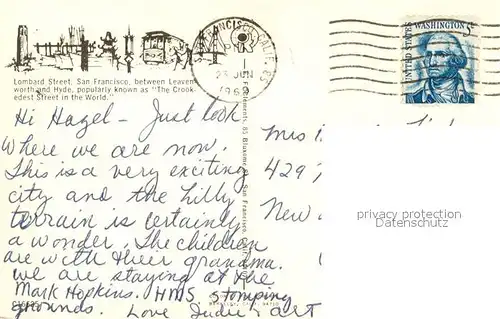 Lombard Street, San Francisco, between Leaven-
worth and Hyde, popularly known as "The Crook-
edest Street in the World."
Hi Hazel - Just look
where we are now.
This is a very exciting
city and the hilly
terrain is certainly
a wonder. The children
are with their grandma.
We are staying at the
Mark Hopkins. HMS stomping
grounds. Love Judie & Art
PM
23 JUN
UNITED STATES
WASHINGTON 5c
Mrs
429
New
privacy protection
Datenschutz